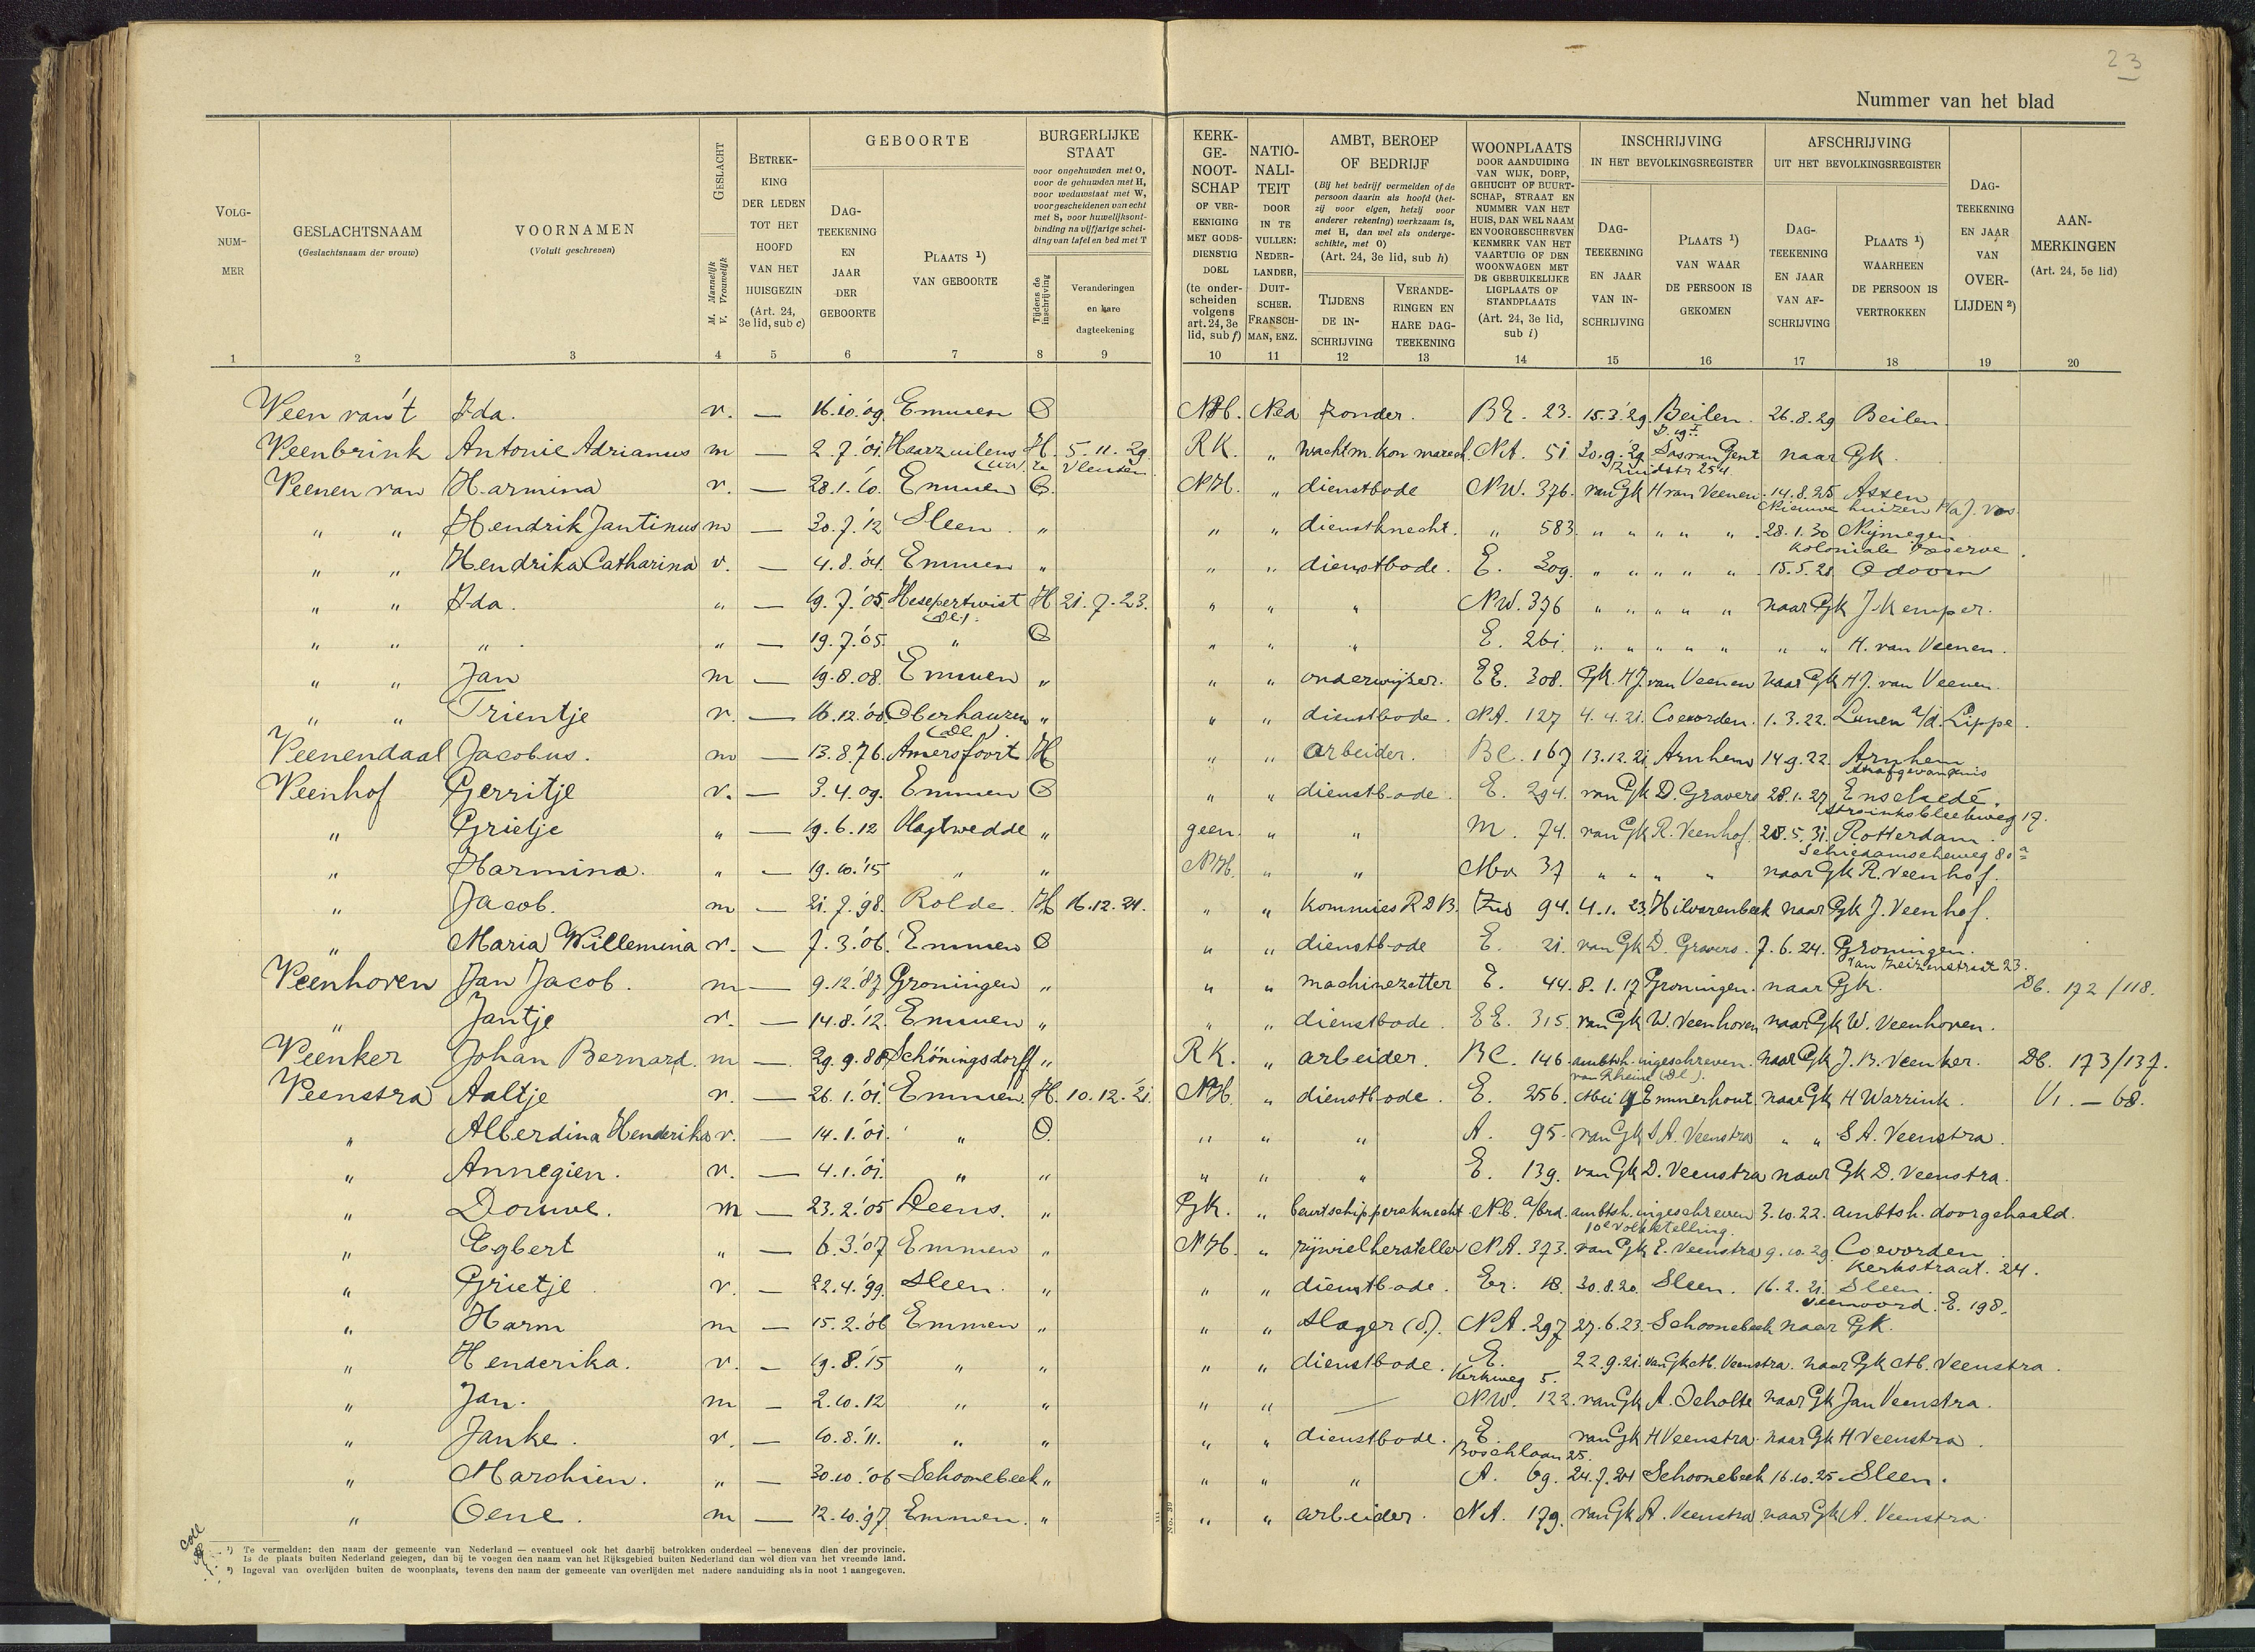 23
Nummer van het blad
VOLG-NUM-MER
GESLACHTSNAAM (Geslachtsnaam der vrouw)
VOORNAMEN (Voluit geschreven)
GESLACHT M. Mannelijk V. Vrouwelijk
BETREK-KING DER LEDEN TOT HET HOOFD VAN HET HUISGEZIN (Art. 24, 3e lid, sub c)
GEBOORTE
DAG-TEEKENING EN JAAR DER GEBOORTE
PLAATS 1) VAN GEBOORTE
BURGERLIJKE STAAT
voor ongehuwden met O, voor de gehuwden met H, voor weduwstaat met W, voor gescheidenen van echt met S, voor huwelijksont-binding na vijfjarige schei-ding van tafel en bed met T
Tijdens de inschrijving
Veranderingen en hare dagteekening
KERK-GE-NOOT-SCHAP OF VER-EENIGING MET GODS-DIENSTIG DOEL (te onder-scheiden volgens art. 24, 3e lid, sub f)
NATIO-NALI-TEIT DOOR IN TE VULLEN: NEDER-LANDER, DUIT-SCHER, FRANSCH-MAN, ENZ.
AMBT, BEROEP OF BEDRIJF
(Bij het bedrijf vermelden of de persoon daarin als hoofd (het-zij voor eigen, hetzij voor anderer rekening) werkzaam is, met H, dan wel als onderge-schikte, met O) (Art. 24, 3e lid, sub h)
TIJDENS DE IN-SCHRIJVING
VERANDE-RINGEN EN HARE DAG-TEEKENING
WOONPLAATS DOOR AANDUIDING VAN WIJK, DORP, GEHUCHT OF BUURT-SCHAP, STRAAT EN NUMMER VAN HET HUIS, DAN WEL NAAM EN VOORGESCHREVEN KENMERK VAN HET VAARTUIG OF DEN WOONWAGEN MET DE GEBRUIKELIJKE LIGPLAATS OF STANDPLAATS (Art. 24, 3e lid, sub i)
INSCHRIJVING IN HET BEVOLKINGSREGISTER
DAG-TEEKENING EN JAAR VAN IN-SCHRIJVING
PLAATS 1) VAN WAAR DE PERSOON IS GEKOMEN
AFSCHRIJVING UIT HET BEVOLKINGSREGISTER
DAG-TEEKENING EN JAAR VAN AF-SCHRIJVING
PLAATS 1) WAARHEEN DE PERSOON IS VERTROKKEN
DAG-TEEKENING EN JAAR VAN OVER-LIJDEN 2)
AAN-MERKINGEN (Art. 24, 5e lid)
1 2 3 4 5 6 7 8 9 10 11 12 13 14 15 16 17 18 19 20
Veen van 't Ida. v. — 16.10.'09 Emmen O NH. Ned zonder. 23. 15.3.'29 Beilen. 26.8.29 Beilen.
Veenbrink Antonie Adrianus m — 2.7.'01. Haarzuilens H. 5.11.29. te Vleuten RK. " wachtm. kon marech. NA. 51 30.9.'29 Sas van Gent naar Gk.
Veenen van Harmina v. — 28.1.'10. Emmen O. NH. " dienstbode NW. 376. van Gk H van Veenen. 14.8.25 Assen
Nieuwe huizen p/a J. Vos
" " Hendrik Jantinus m — 30.7.'12 Sleen. " " " dienstknecht. " 583. " " " " " 28.1.30 Nijmegen
Koloniale reserve.
" " Hendrika Catharina v. — 4.8.'04. Emmen " " " dienstbode. E. 309. " " " " " 15.5.28 Odoorn
" " Ida. " — 19.7.'05. Hesepertwist (Dl). H 21.7.23. " " " NW. 376 " " " " " naar Gk J. Kemper.
" " " " — 19.7.'05. " O " " " E. 261. " " " " " " " H. van Veenen.
" " Jan m — 19.8.08. Emmen " " " onderwijzer. EE. 308. Gk. HJ. van Veenen naar Gk HJ. van Veenen.
" " Trientje v. — 16.12.'00. Oberhauzen (Dl). " " " dienstbode. NA. 127 4.4.21. Coevorden. 1.3.22. Lunen a/d. Lippe.
Veenendaal Jacobus. m — 13.8.'76. Amersfoort H " " arbeider. BC. 167 13.12.21. Arnhem 14.9.22. Arnhem
strafgevangenis
Veenhof Gerritje v. — 3.4.09. Emmen O " " dienstbode. E. 294. van Gk D. Gravers 28.1.27 Enschedé.
Stroinksbleekweg 17.
" Grietje " — 19.6.12 Vlagtwedde " geen. " " M. 74. van Gk R. Veenhof. 28.5.31. Rotterdam.
Schiedamscheweg 80a
" Harmina. " — 19.10.'15 " " NH. " " 37 " " " " naar Gk R. Veenhof.
" Jacob. m — 21.7.'98. Rolde. H 16.12.21. " " kommies R D B. 94. 4.1.23. Hilvarenbeek naar Gk J. Veenhof.
" Maria Willemina v. — 7.3.'06. Emmen O " " dienstbode E. 21. van Gk D. Gravers. 7.6.24. Groningen.
Van Heizenstraat 23.
Veenhoven Jan Jacob. m — 9.12.'87 Groningen " " " machinezetter E. 44. 8.1.17 Groningen. naar Gk. Db. 172/118.
" Jantje v. — 14.8.'12. Emmen " " " dienstbode. EE. 315. van Gk W. Veenhoven naar Gk W. Veenhoven.
Veenker Johan Bernard. m — 29.9.88 Schöningsdorff " RK. " arbeider. BC. 146. ambtsh. ingeschreven. naar Gk J. B. Veenker. Db. 173/137.
van Rheine (Dl).
Veenstra Aaltje v. — 26.1.'01. Emmen. H. 10.12.'21. NH. " dienstbode. E. 256. Emmerhout. naar Gk H Warrink. V1. — 68.
" Alberdina Henderika v. — 14.1.'01. " O. " " " A. 95. van Gk S A. Veenstra " " S A. Veenstra.
" Annegien. v. — 4.1.'01. " " " " " E. 139. van Gk D. Veenstra naar Gk D. Veenstra.
" Douwe. m — 23.2.'05 Deens. " Gk. " beurtschippersknecht Nb. a/brd. ambtsh. ingeschreven 3.10.22. ambtsh. doorgehaald.
10e Volkstelling.
" Egbert " — 6.3.'07 Emmen " NH. " rijwielhersteller NA. 373. van Gk E. Veenstra 9.10.29. Coevorden.
Kerkstraat. 24.
" Grietje v. — 22.4.'99. Sleen. " " " dienstbode. Er. 18. 30.8.20. Sleen. 16.2.21. Sleen.
Veenoord. E. 198.
" Harm m — 15.2.'06 Emmen " " " slager (O.). NA. 297 27.6.23. Schoonebeek naar Gk.
" Henderika. v. — 19.8.'15 " " " " dienstbode. E. Kerkweg 5. 22.9.21. van Gk M. Veenstra. naar Gk M. Veenstra.
" Jan. m — 2.10.12 " " " " — NW. 122. van Gk A. Scholte naar Gk Jan Veenstra.
" Janke. v. — 10.8.'11. " " " " dienstbode. E. Boschlaan 25. van Gk H Veenstra. naar Gk H Veenstra.
" Marchien. " — 30.10.'06 Schoonebeek " " " " A. 69. 24.7.24 Schoonebeek 16.10.25 Sleen.
" Oene. m — 12.10.'97 Emmen. " " " arbeider. NA. 179. van Gk A. Veenstra naar Gk A. Veenstra
coll
1) Te vermelden: den naam der gemeente van Nederland — eventueel ook het daarbij betrokken onderdeel — benevens dien der provincie.
Is de plaats buiten Nederland gelegen, dan bij te voegen den naam van het Rijksgebied buiten Nederland dan wel dien van het vreemde land.
2) Ingeval van overlijden buiten de woonplaats, tevens den naam der gemeente van overlijden met nadere aanduiding als in noot 1 aangegeven.